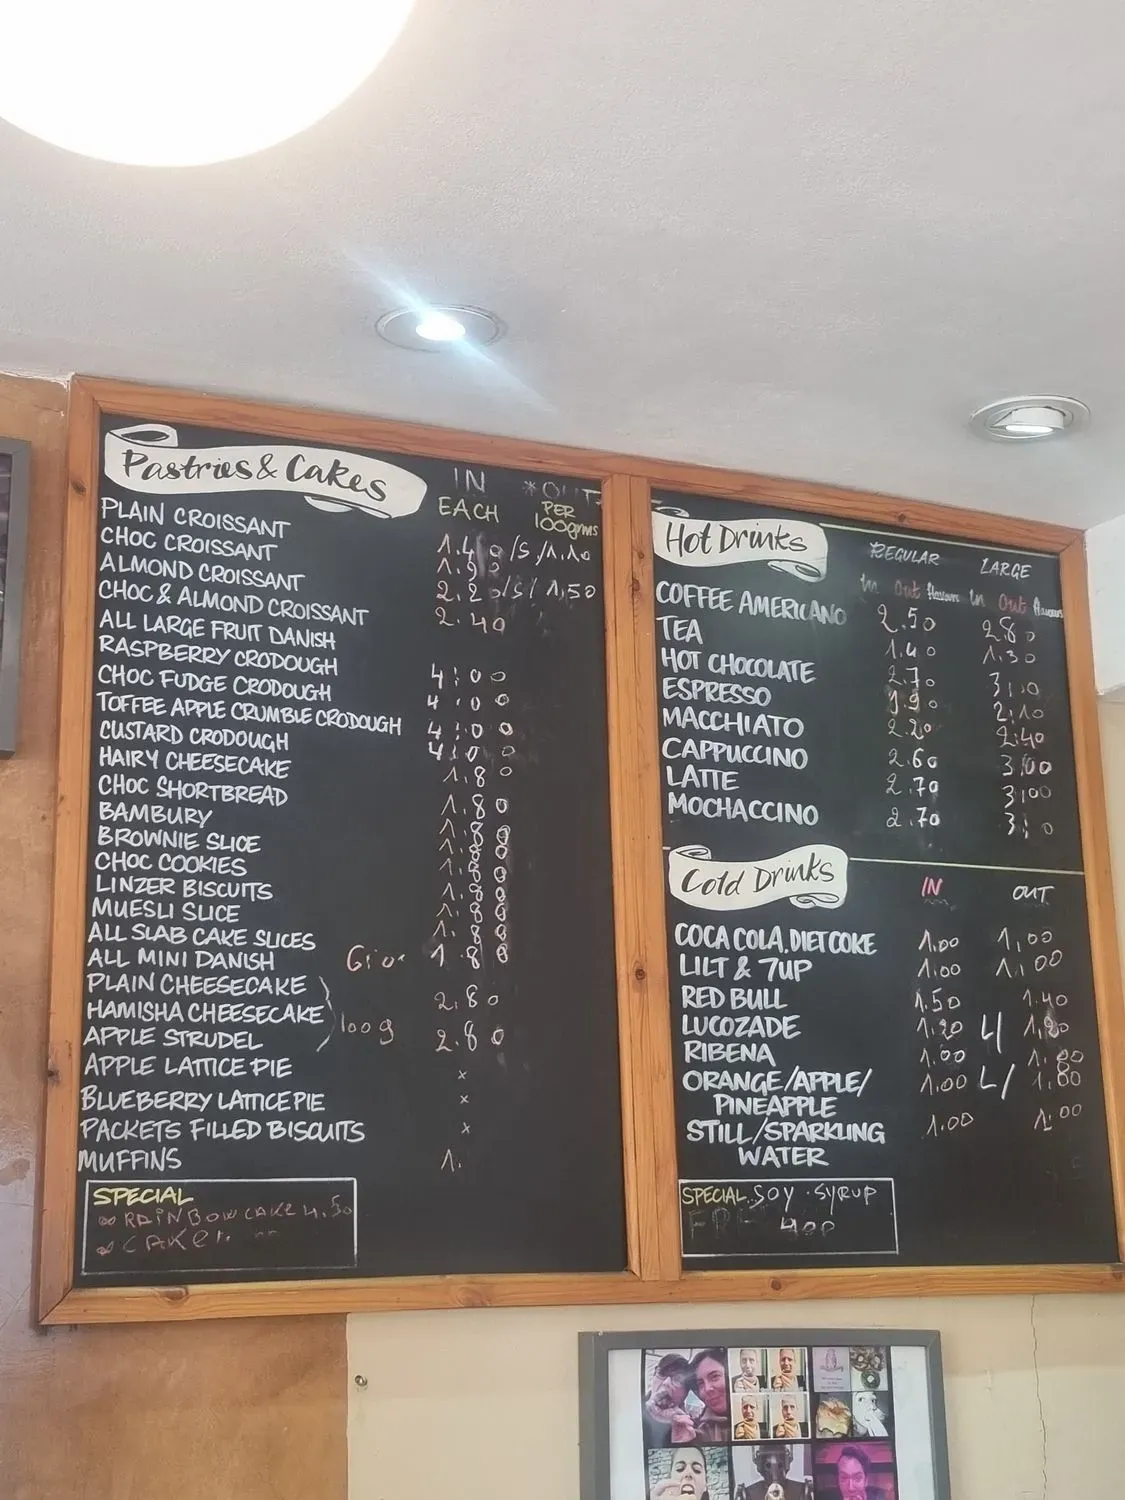 Pastries & Cakes
IN
EACH
PER
100gms
PLAIN CROISSANT
CHOC CROISSANT
ALMOND CROISSANT
CHOC & ALMOND CROISSANT
ALL LARGE FRUIT DANISH
RASPBERRY CRODOUGH
CHOC FUDGE CRODOUGH
TOFFEE APPLE CRUMBLE CRODOUGH
CUSTARD CRODOUGH
HAIRY CHEESECAKE
CHOC SHORTBREAD
BAMBURY
BROWNIE SLICE
CHOC COOKIES
LINZER BISCUITS
MUESLI SLICE
ALL SLAB CAKE SLICES
ALL MINI DANISH
PLAIN CHEESECAKE
HAMISHA CHEESECAKE
APPLE STRUDEL
100g
APPLE LATTICE PIE
BLUEBERRY LATTICE PIE
PACKETS FILLED BISCUITS
MUFFINS
2.40
4.00
4.00
4.00
4.00
1.80
1.80
2.80
2.80
SPECIAL
RAINBOW CAKE 4.50
Hot Drinks
REGULAR LARGE
In Out flavours In Out flavours
COFFEE AMERICANO 2.50 2.80
TEA 1.40 1.30
HOT CHOCOLATE 2.70
ESPRESSO 1.90 2.10
MACCHIATO 2.20 2.40
CAPPUCCINO 2.60 3.00
LATTE 2.70 3.00
MOCHACCINO 2.70
Cold Drinks
IN OUT
COCA COLA, DIET COKE 1.00 1.00
LILT & 7UP 1.00 1.00
RED BULL 1.50 1.40
LUCOZADE 1.20 1.20
RIBENA 1.00
ORANGE/APPLE/ 1.00
PINEAPPLE
STILL/SPARKLING 1.00 1.00
WATER
SPECIAL SOY · SYRUP
40P